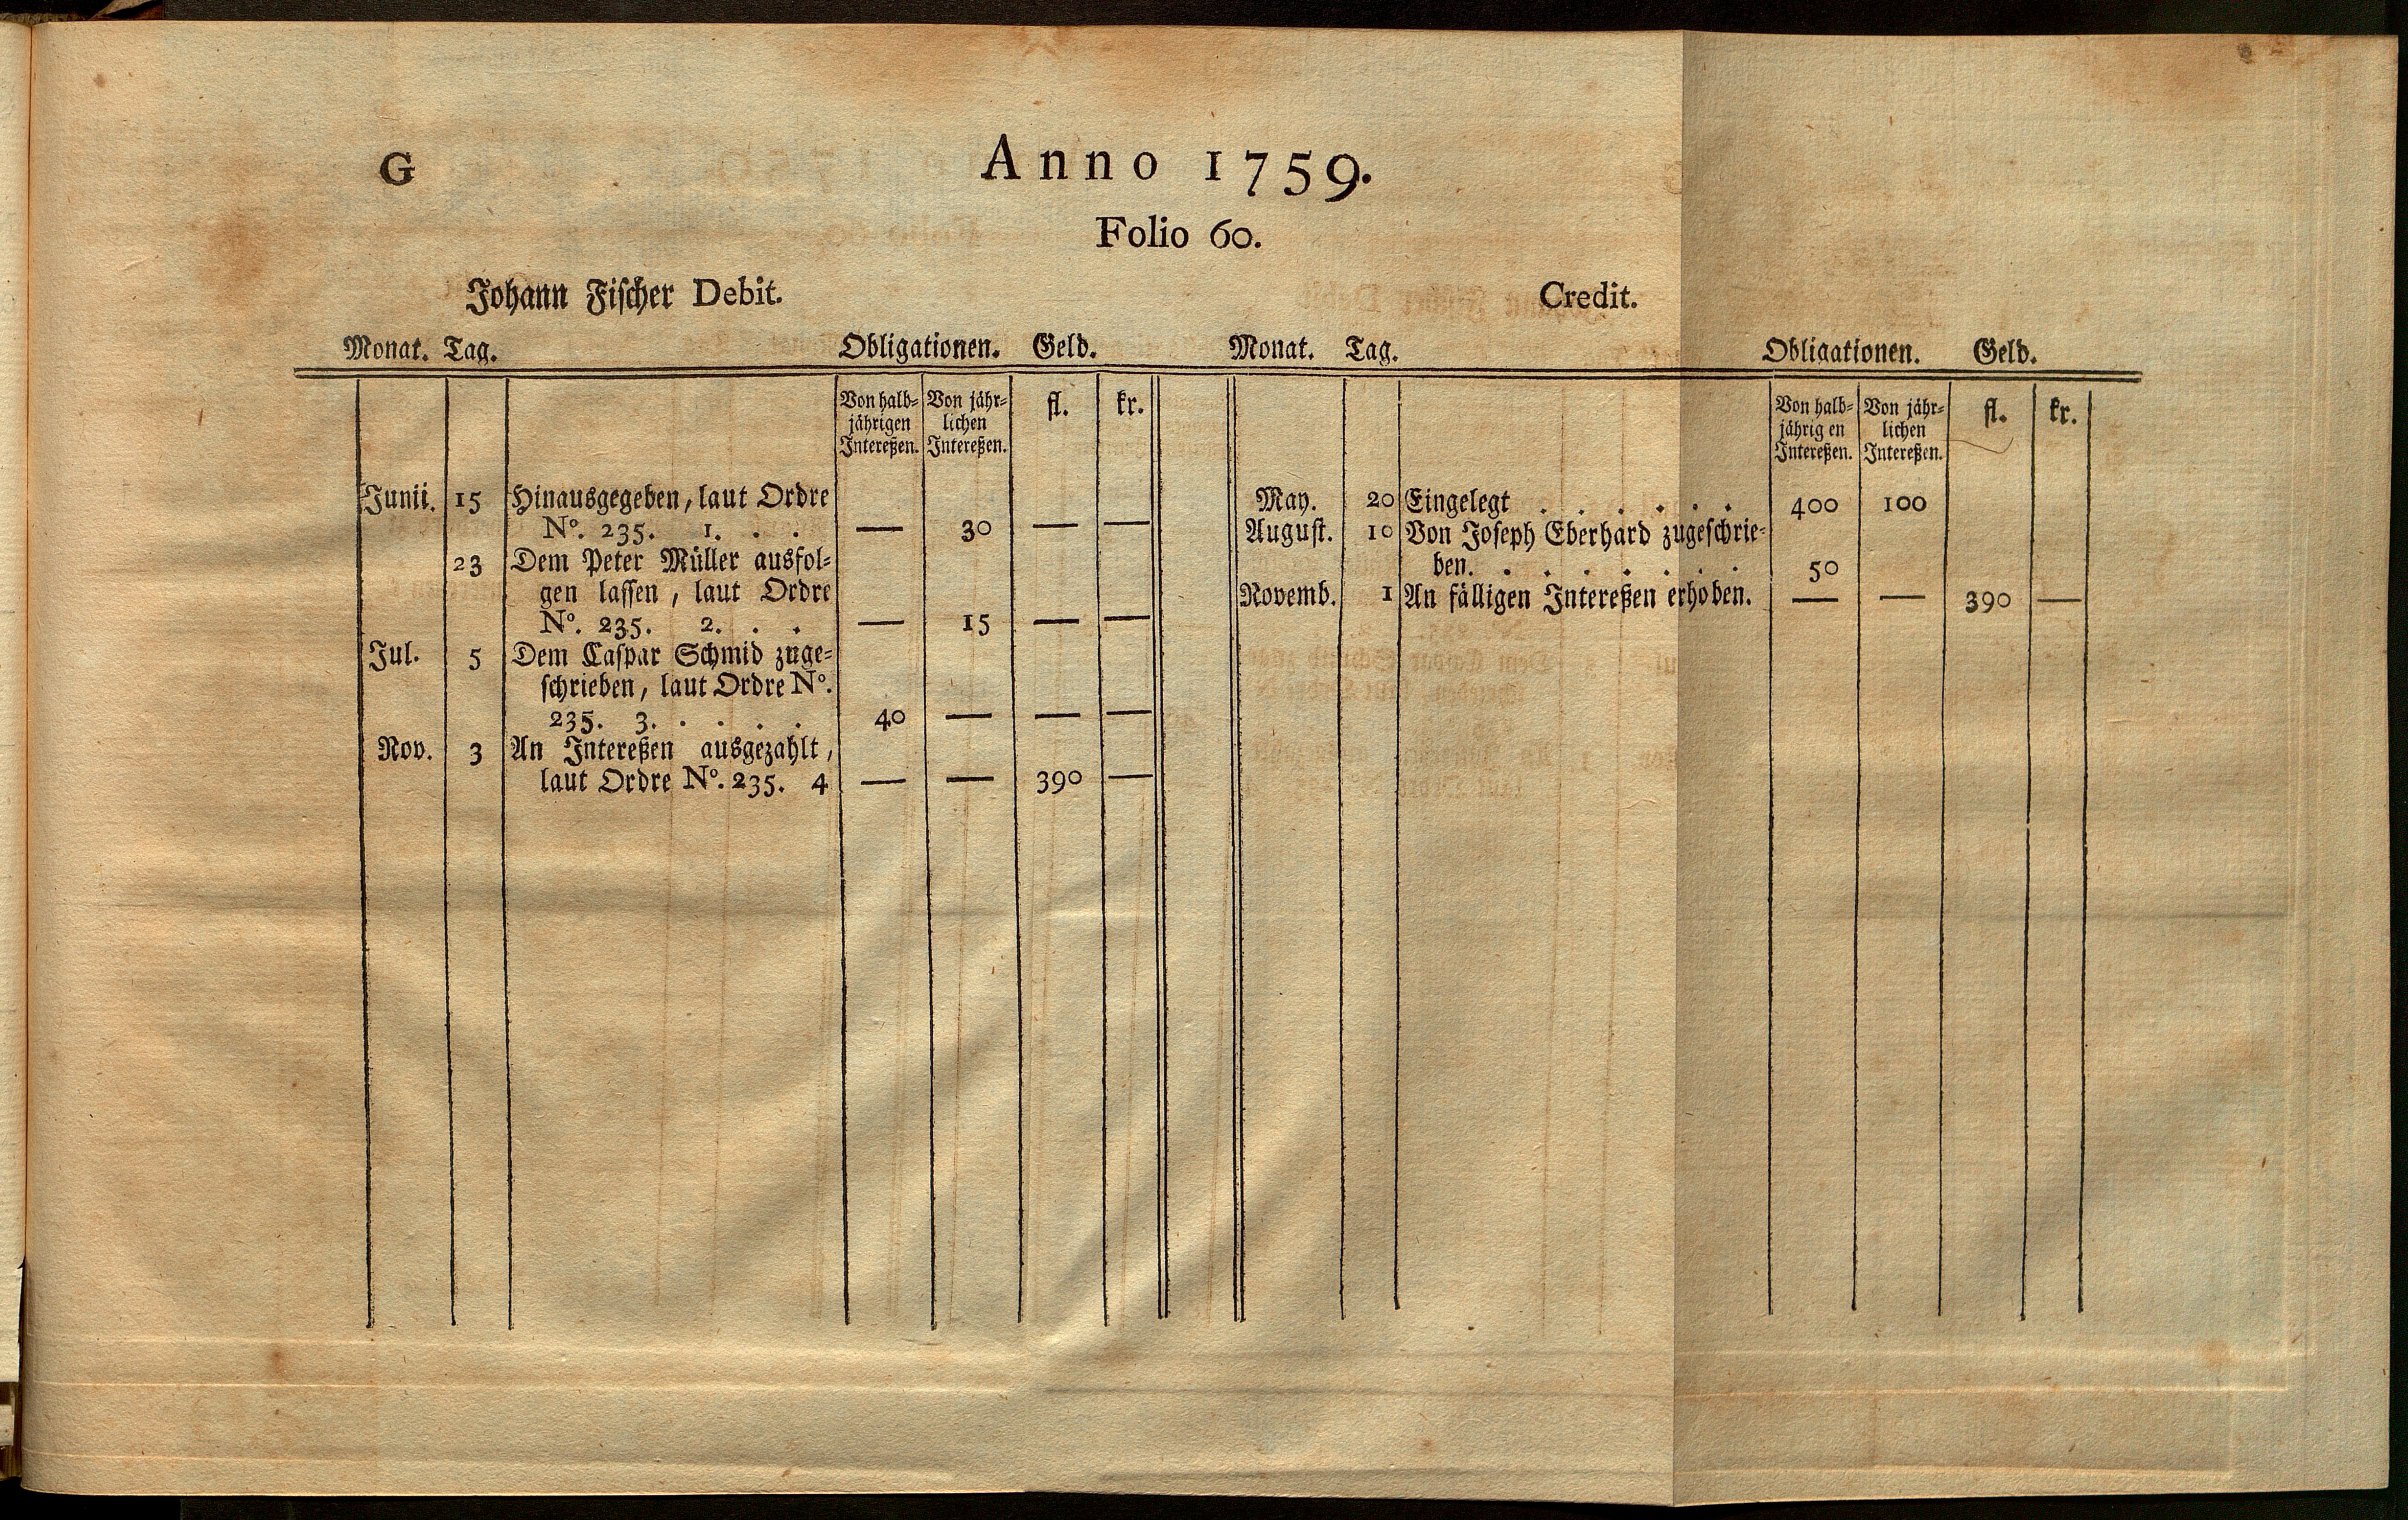 G
Anno 1759.
Folio 60.
Johann Fischer Debit.
Monat. Tag. Obligationen. Geld.
Von halb= Von jähr= fl. kr.
jährigen lichen
Intereßen. Intereßen.
Junii. 15 Hinausgegeben, laut Ordre
N°. 235. 1. . . — 30 — —
23 Dem Peter Müller ausfol=
gen lassen, laut Ordre
N°. 235. 2. . . — 15 — —
Jul. 5 Dem Caspar Schmid zuge=
schrieben, laut Ordre N°.
235. 3. . . . . 40 — — —
Nov. 3 An Intereßen ausgezahlt,
laut Ordre N°. 235. 4 — — 390 —
Credit.
Monat. Tag. Obligationen. Geld.
Von halb= Von jähr= fl. kr.
jährig en lichen
Intereßen. Intereßen.
May. 20 Eingelegt . . . . . . 400 100
August. 10 Von Joseph Eberhard zugeschrie=
ben. . . . . . . . 50
Novemb. 1 An fälligen Intereßen erhoben. — — 390 —